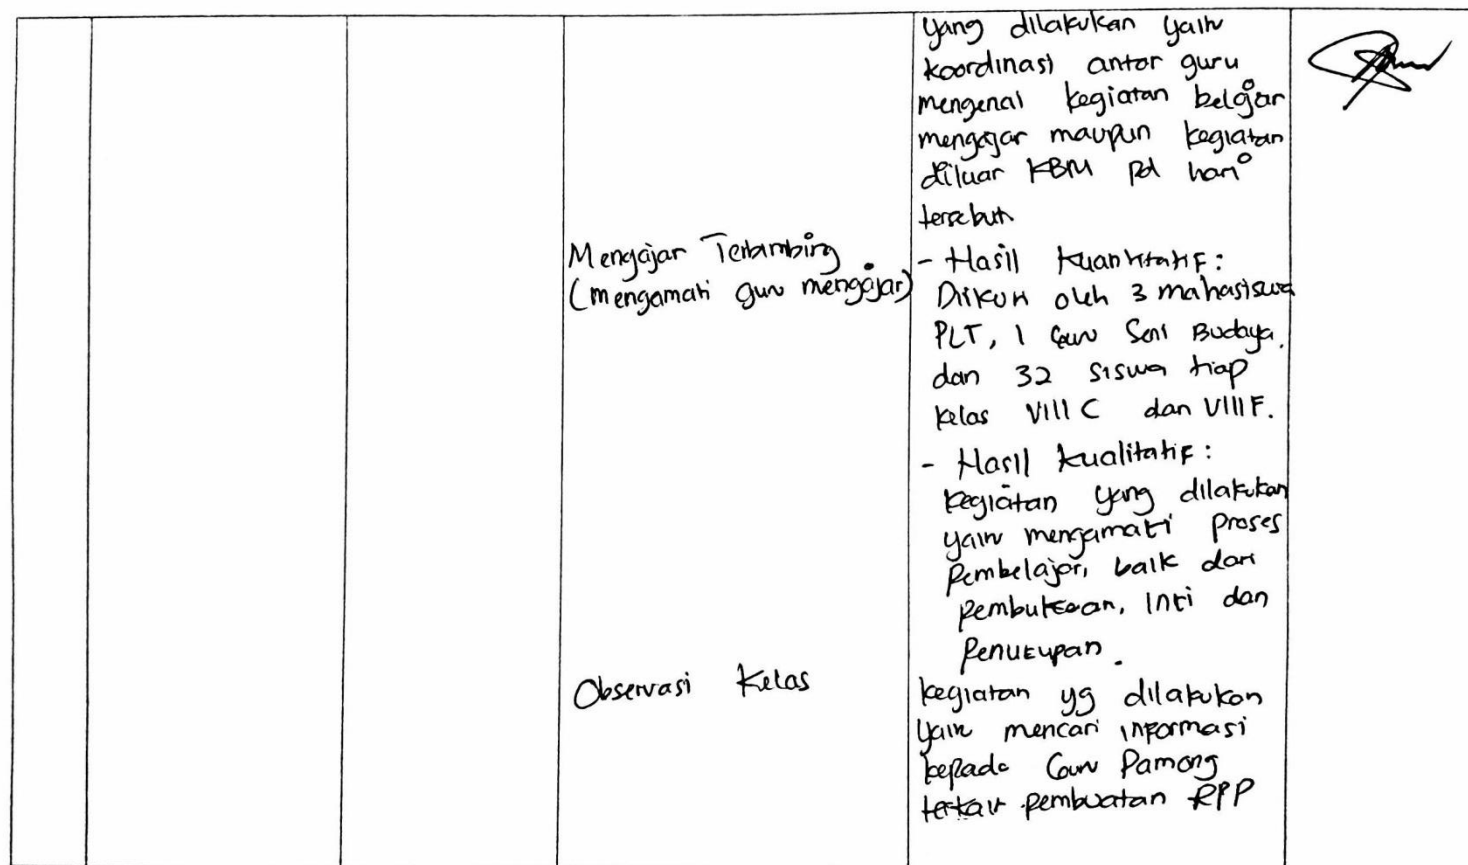 yang dilakukan yaitu
koordinasi antar guru
mengenai kegiatan belajar
mengajar maupun kegiatan
diluar KBM pd hari
tersebut
Mengajar Terbimbing
(mengamati guru mengajar)
- Hasil Kuantitatif:
Diikuti oleh 3 mahasiswa
PLT, 1 Guru Seni Budaya.
dan 32 siswa tiap
kelas VIII C dan VIII F.
- Hasil kualitatif:
kegiatan yang dilakukan
yaitu mengamati proses
Pembelajar, baik dari
pembukaan, Inti dan
Penutupan.
Observasi Kelas
kegiatan yg dilakukan
yaitu mencari informasi
kepada Guru Pamong
terkait pembuatan RPP